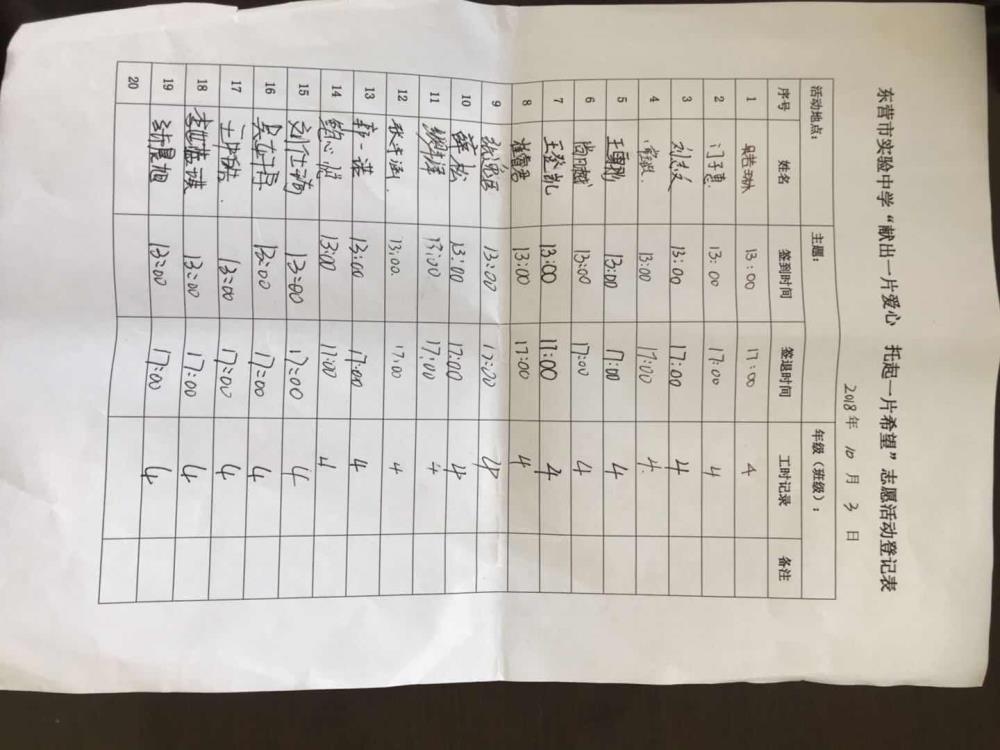 东营市实验中学“献出一片爱心 托起一片希望”志愿活动登记表
2018年 10月 3日
活动地点： 主题： 年级（班级）：
序号 姓名 签到时间 签退时间 工时记录 备注
1 13:00 17:00 4
2 门子惠 13:00 17:00 4
3 刘志文 13:00 17:00 4
4 13:00 17:00 4
5 13:00 17:00 4
6 尚明越 13:00 17:00 4
7 王登凯 13:00 17:00 4
8 崔智君 13:00 17:00 4
9 13:00 17:00 4
10 薛松 13:00 17:00 4
11 13:00 17:00 4
12 张子涵 13:00 17:00 4
13 郭一诺 13:00 17:00 4
14 鲍心悦 13:00 17:00 4
15 刘仕琦 13:00 17:00 4
16 13:00 17:00 4
17 13:00 17:00 4
18 13:00 17:00 4
19 靳晨旭 13:00 17:00 4
20